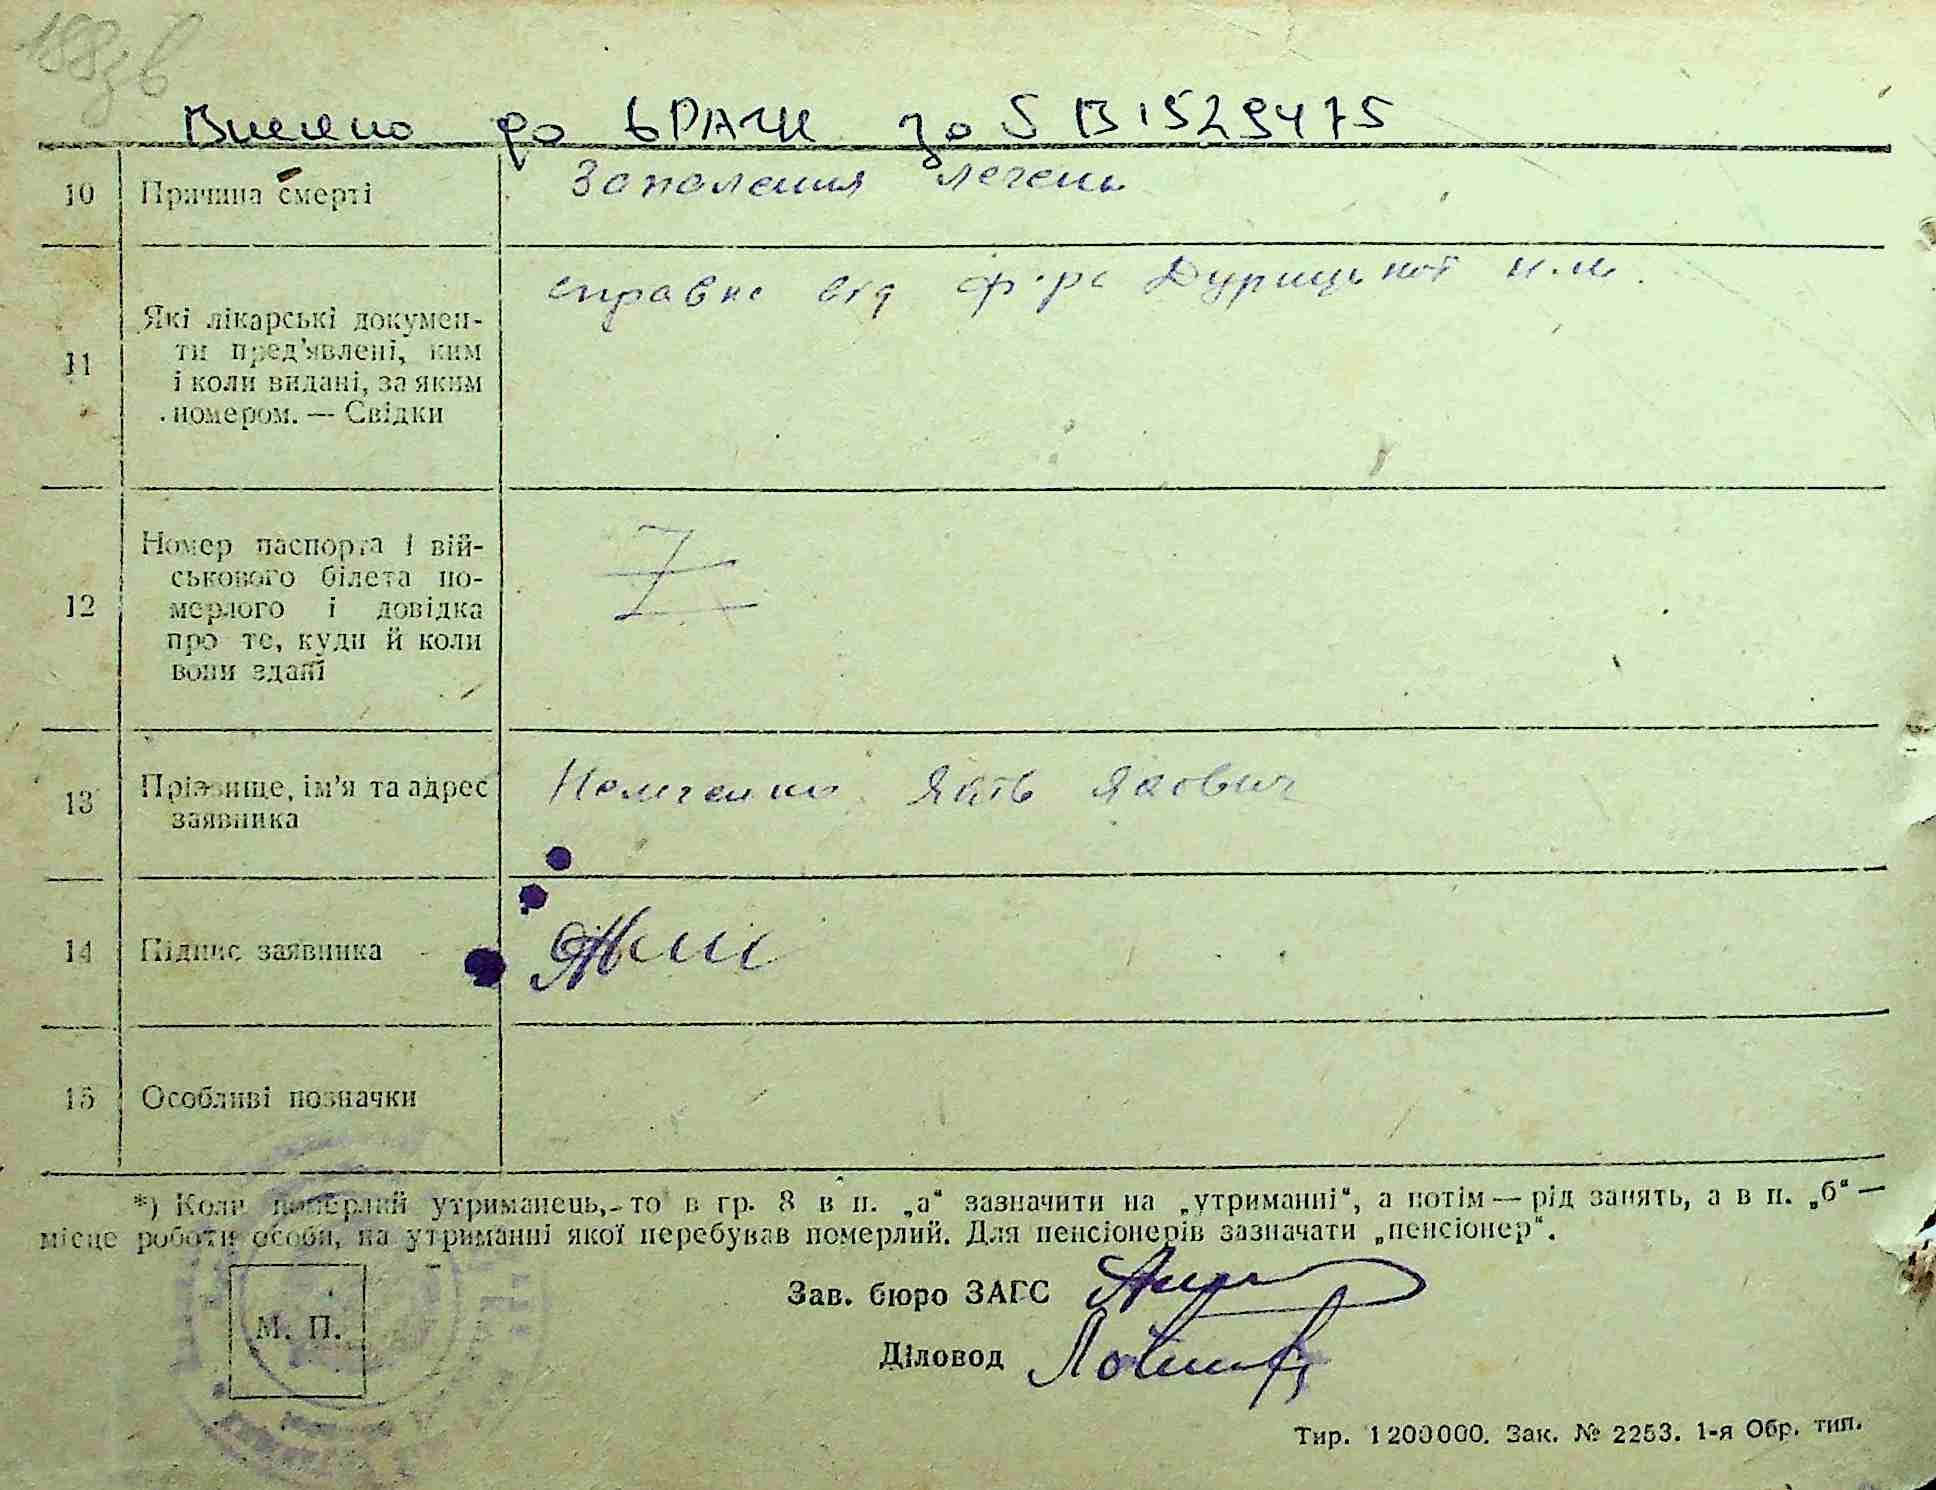 188зв
Внесено до ДРАЦС за № 15295475
10 Причина смерті Запалення легень
11 Які лікарські докумен-
ти пред'явлені, ким
і коли видані, за яким
номером. — Свідки
справка від ф-ра Дурицької
12 Номер паспорта і вій-
ськового білета по-
мерлого і довідка
про те, куди й коли
вони здані
Z
13 Прізвище, ім'я та адрес
заявника
Немченко Яків
14 Підпис заявника
15 Особливі позначки
*) Коли померлий утриманець,-то в гр. 8 в п. „а“ зазначити на „утриманні“, а потім — рід занять, а в п. „б“ —
місце роботи особи, на утриманні якої перебував померлий. Для пенсіонерів зазначати „пенсіонер“.
Зав. бюро ЗАГС
М. П.
Діловод
Тир. 1200000. Зак. № 2253. 1-я Обр. тип.